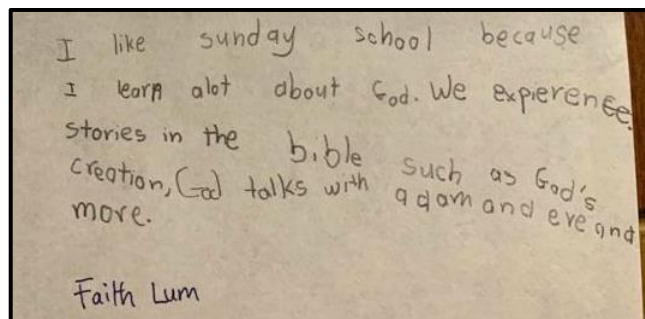 I like sunday school because
I learn alot about God. We expierence
stories in the bible such as God's
creation, God talks with adam and eve and
more.
Faith Lum